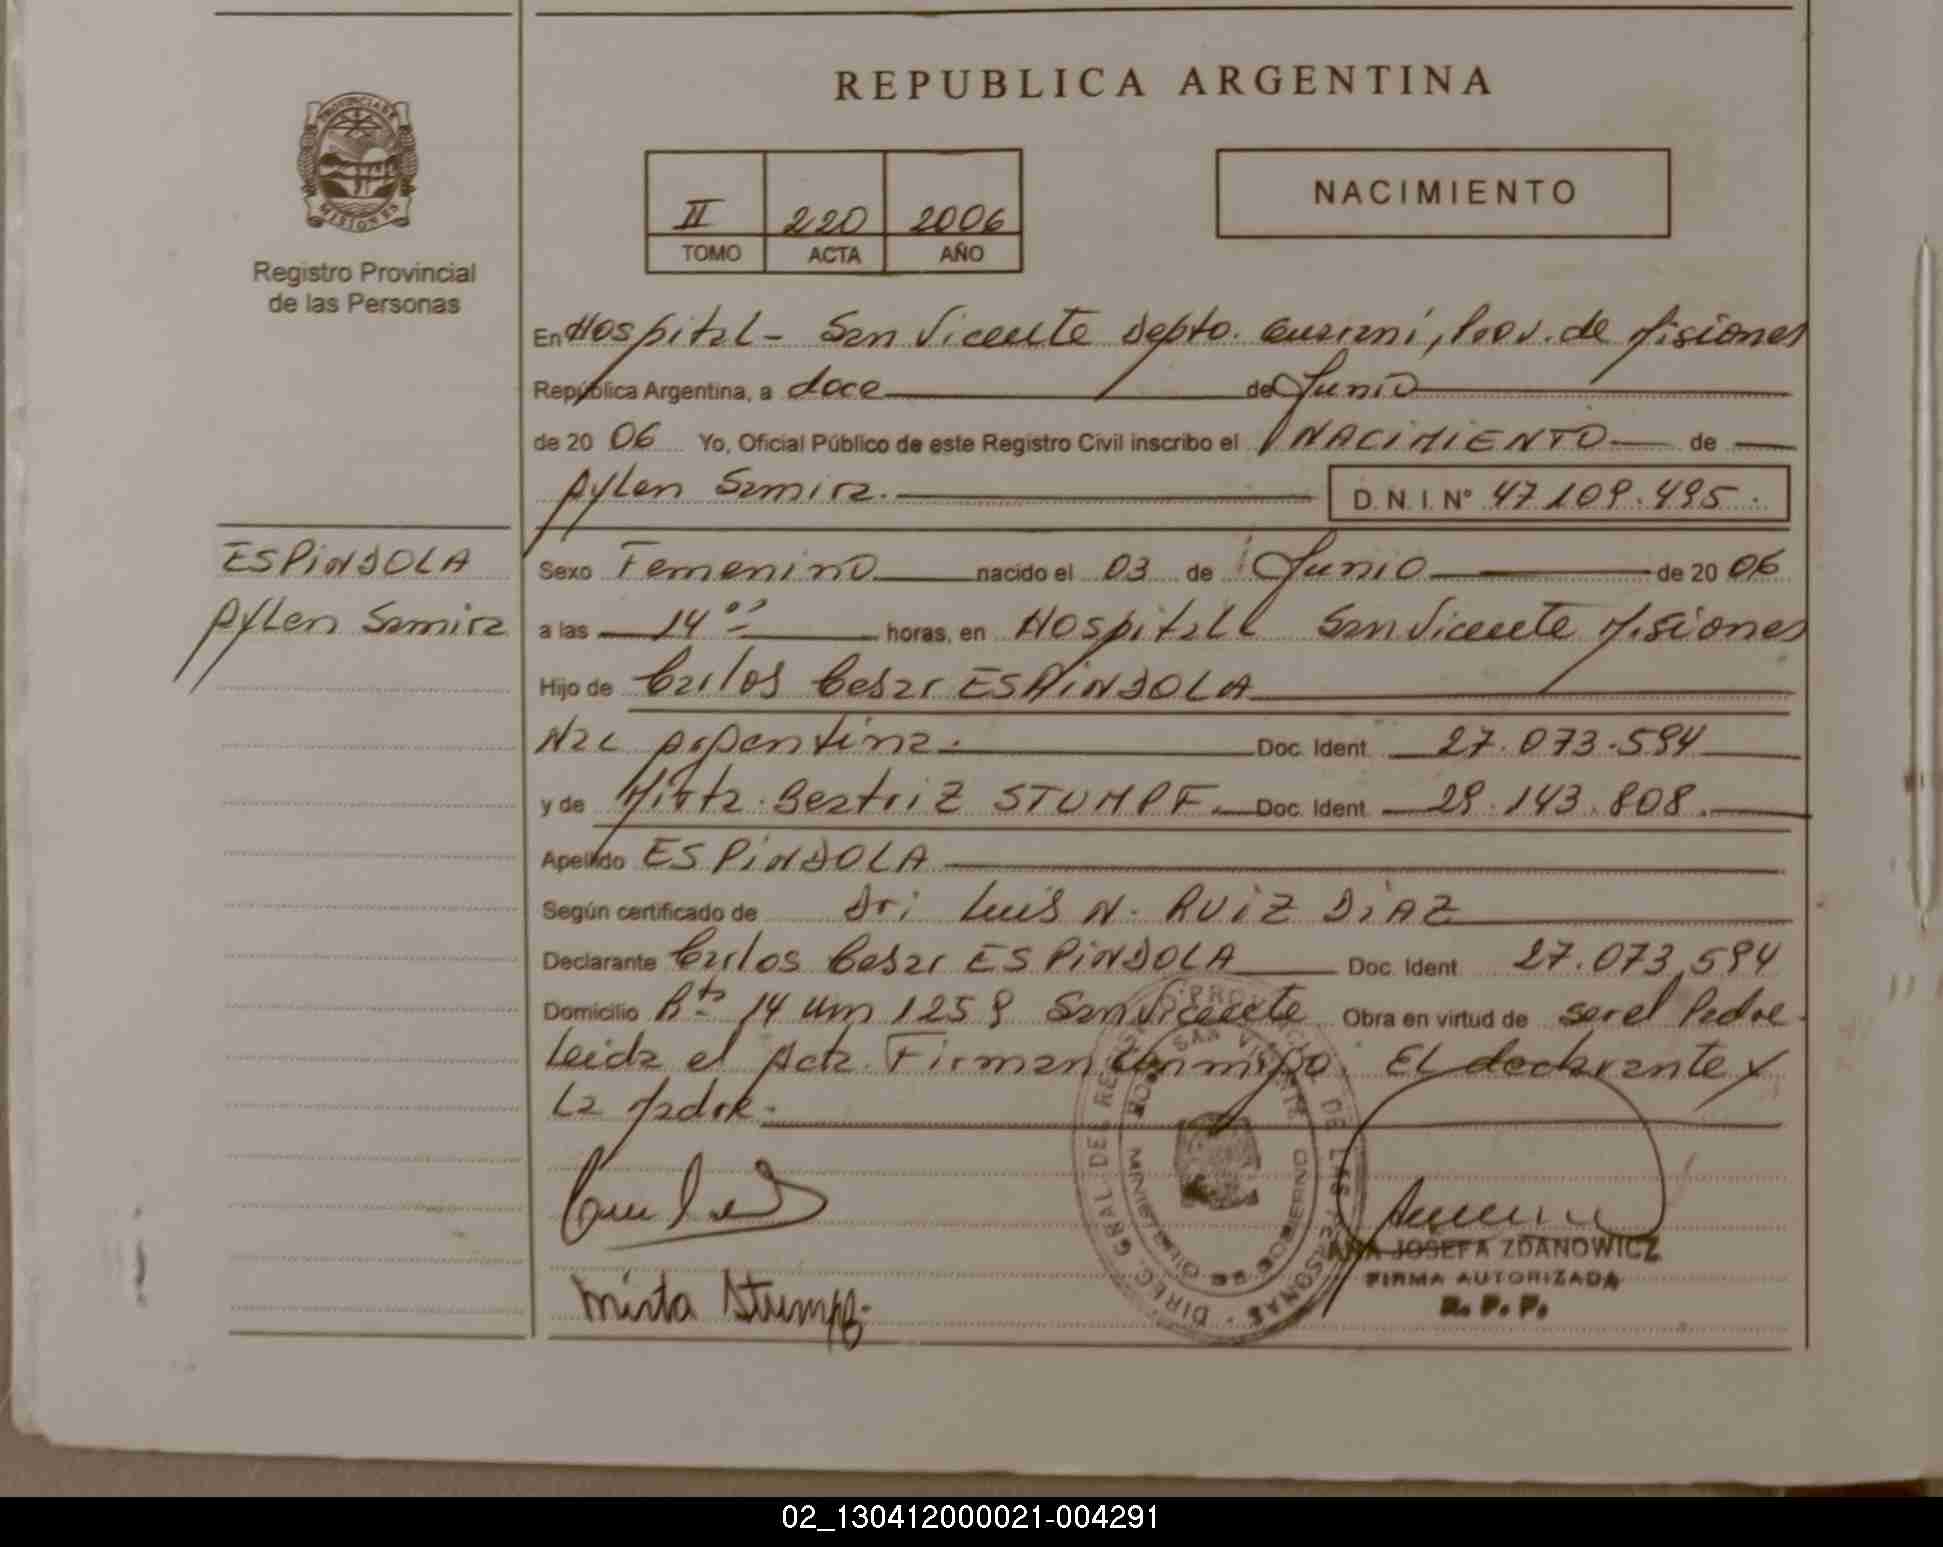 REPUBLICA ARGENTINA
PROVINCIA DE MISIONES
Registro Provincial
de las Personas
II 220 2006
TOMO ACTA AÑO
NACIMIENTO
En Hospital - San Vicente Depto. Guarani, Prov. de Misiones
República Argentina, a doce de Junio
de 20 06 Yo, Oficial Público de este Registro Civil inscribo el NACIMIENTO de
Aylen Samira. D. N. I. Nº 47.109.495.
ESPINDOLA
Aylen Samira
Sexo Femenino nacido el 03 de Junio de 20 06
a las 14 00 horas, en Hospitall San Vicente Misiones
Hijo de Carlos Cesar ESPINDOLA
Nac Argentina. Doc. Ident. 27.073.594
y de Mirta Beatriz STUMPF. Doc. Ident. 29.143.808.
Apellido ESPINDOLA
Según certificado de Dr: Luis N. RUIZ DIAZ
Declarante Carlos Cesar ESPINDOLA Doc. Ident. 27.073.594
Domicilio Rta 14 Km 1259 San Vicente Obra en virtud de ser el Padre.
Leida el Acta. Firman conmigo: El declarante y
La Madre.
Mirta Stumpf.
DIREC. GRAL. DEL REG. PROV. DE LAS PERSONAS
SAN VICENTE
MINISTERIO DE GOBIERNO
ANA JOSEFA ZDANOWICZ
FIRMA AUTORIZADA
R. P. P.
02_130412000021-004291